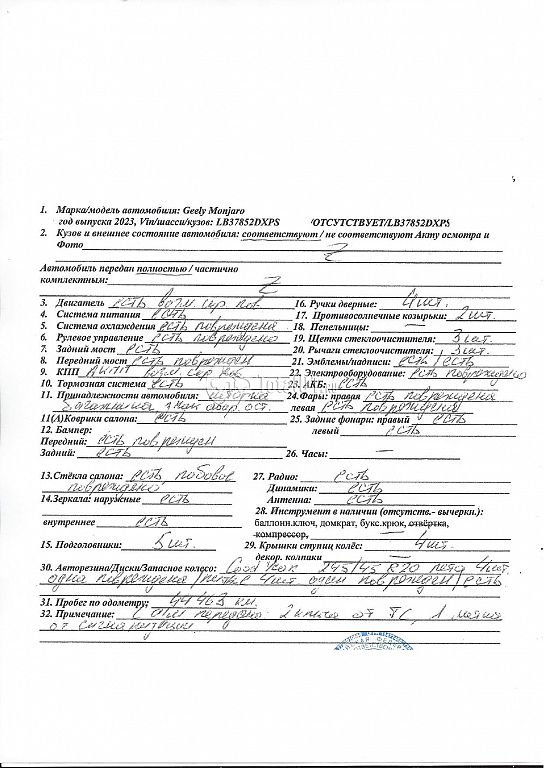 1. Марка/модель автомобиля: Geely Monjaro
год выпуска 2023, Vin/шасси/кузов: LB37852DXPS /ОТСУТСТВУЕТ/LB37852DXPS
2. Кузов и внешнее состояние автомобиля: соответствуют / не соответствуют Акту осмотра и
Фото
Автомобиль передан полностью / частично
комплектным:
3. Двигатель есть возм. сер. пов. 16. Ручки дверные: 4 шт.
4. Система питания есть 17. Противосолнечные козырьки: 2 шт.
5. Система охлаждения есть повреждена 18. Пепельницы: —
6. Рулевое управление есть повреждено 19. Щетки стеклоочистителя: 3 шт.
7. Задний мост есть 20. Рычаги стеклоочистителя: 3 шт.
8. Передний мост есть поврежден 21. Эмблемы/надписи: есть / есть
9. КПП АКПП возм. сер пов 22. Электрооборудование: есть повреждено
10. Тормозная система есть 23. АКБ: есть
11. Принадлежности автомобиля: шторка 24.Фары: правая есть повреждена
багажника знак авар. ост. левая есть повреждена
11(А)Коврики салона: есть 25. Задние фонари: правый есть
12. Бампер: левый есть
Передний: есть поврежден
Задний: есть 26. Часы: —
13.Стёкла салона: есть лобовое 27. Радио: есть
повреждено Динамики: есть
14.Зеркала: наружные есть Антенна: есть
28. Инструмент в наличии (отсутств.- вычеркн.):
внутреннее есть баллонн.ключ, домкрат, букс.крюк, отвёртка,
компрессор,
15. Подголовники: 5 шт. 29. Крышки ступиц колёс: 4 шт.
декор. колпаки —
30. Авторезина/Диски/Запасное колесо: 245/45 R20 лето 4 шт.
одна повреждена / литые 4 шт. один поврежден / есть
31. Пробег по одометру: 44463 км.
32. Примечание: С а/м передано: 2 ключа от ТС, 1 метка
от сигнализации